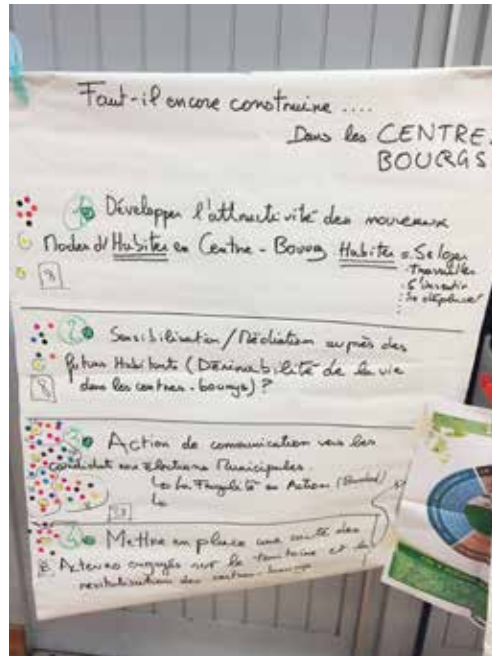 Faut-il encore construire ....
Dans les CENTRE-
BOURGS
1 Développer l'attractivité des nouveaux
Modes d'Habiter en Centre-Bourg Habiter = Se loger
Travailler
S'investir
Se déplacer
8
2 Sensibilisation/Médiation auprès des
futurs Habitants (Désirabilité de la vie
dans les centres-bourgs) ?
8
3 Action de communication vers les
candidats aux élections Municipales.
La Fragilité en Action
4 Mettre en place une unité des
8 Acteurs engagés sur le territoire et la
revitalisation des centres-bourgs